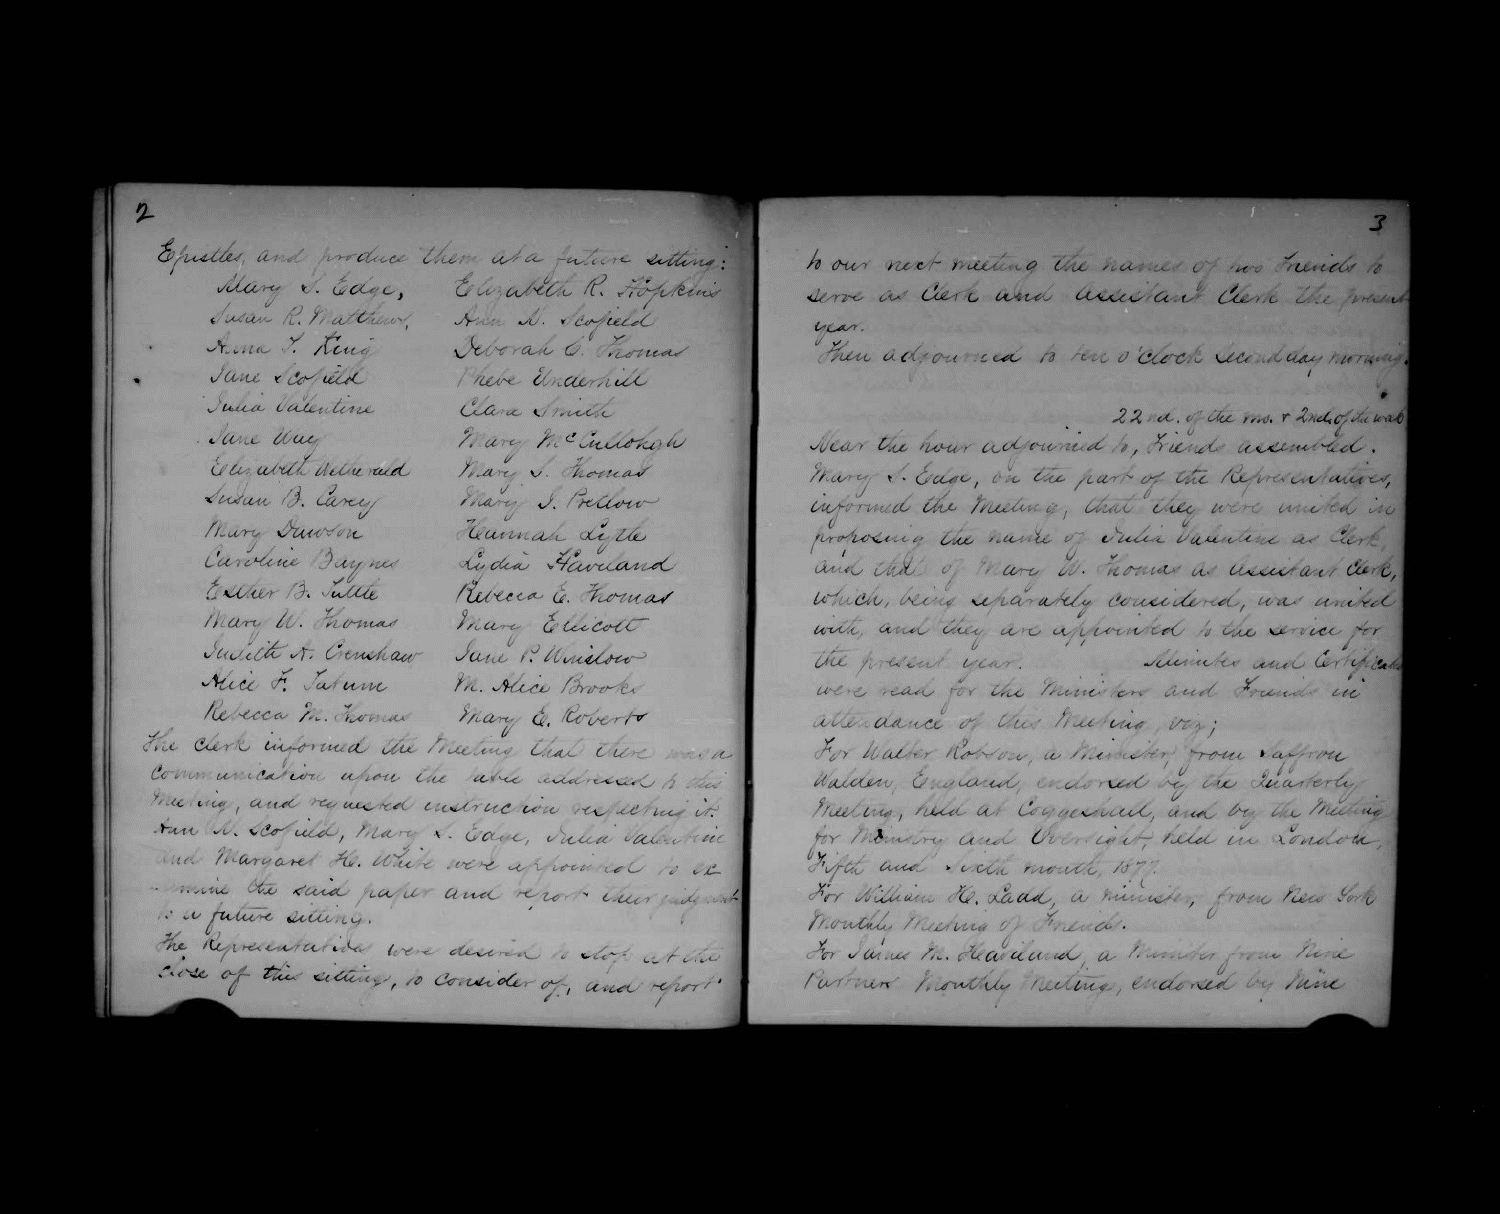 2
Epistles, and produce them at a future sitting:
Mary S. Edge, Elizabeth R. Hopkins
Susan R. Matthews, Ann N. Scofield
Anna T. King Deborah C. Thomas
Jane Scofield Phebe Underhill
Julia Valentine Clara Smith
Jane Way Mary McCullohgh
Elizabeth Wetherald Mary S. Thomas
Susan B. Carey Mary J. Preslow
Mary Dawson Hannah Lytle
Caroline Baynes Lydia Haviland
Esther B. Tuttle Rebecca E. Thomas
Mary W. Thomas Mary Ellicott
Judith A. Crenshaw Jane P. Winslow
Alice F. Tatum M. Alice Brooks
Rebecca M. Thomas Mary E. Roberts
The clerk informed the Meeting that there was a
communication upon the table addressed to this
Meeting, and requested instruction respecting it.
Ann N. Scofield, Mary S. Edge, Julia Valentine
and Margaret H. White were appointed to ex-
amine the said paper and report their judgment
to a future sitting.
The Representatives were desired to stop at the
close of this sitting, to consider of, and report
3
to our next meeting the names of two Friends to
serve as Clerk and Assistant Clerk the present
year.
Then adjourned to ten o'clock Second day morning.
22nd. of the mo. & 2nd. of the week
Near the hour adjourned to, Friends assembled.
Mary S. Edge, on the part of the Representatives,
informed the Meeting, that they were united in
proposing the name of Julia Valentine as Clerk,
and that of Mary W. Thomas as Assistant Clerk,
which, being separately considered, was united
with, and they are appointed to the service for
the present year. Minutes and Certificates
were read for the Ministers and Friends in
attendance of this Meeting, viz;
For Walter Robson, a Minister, from Saffron
Walden, England, endorsed by the Quarterly
Meeting, held at Coggeshall, and by the Meeting
for Ministry and Oversight, held in London,
Fifth and Sixth month, 1877.
For William H. Ladd, a minister, from New York
Monthly Meeting of Friends.
For James M. Haviland, a Minister from Nine
Partners Monthly Meeting, endorsed by Nine